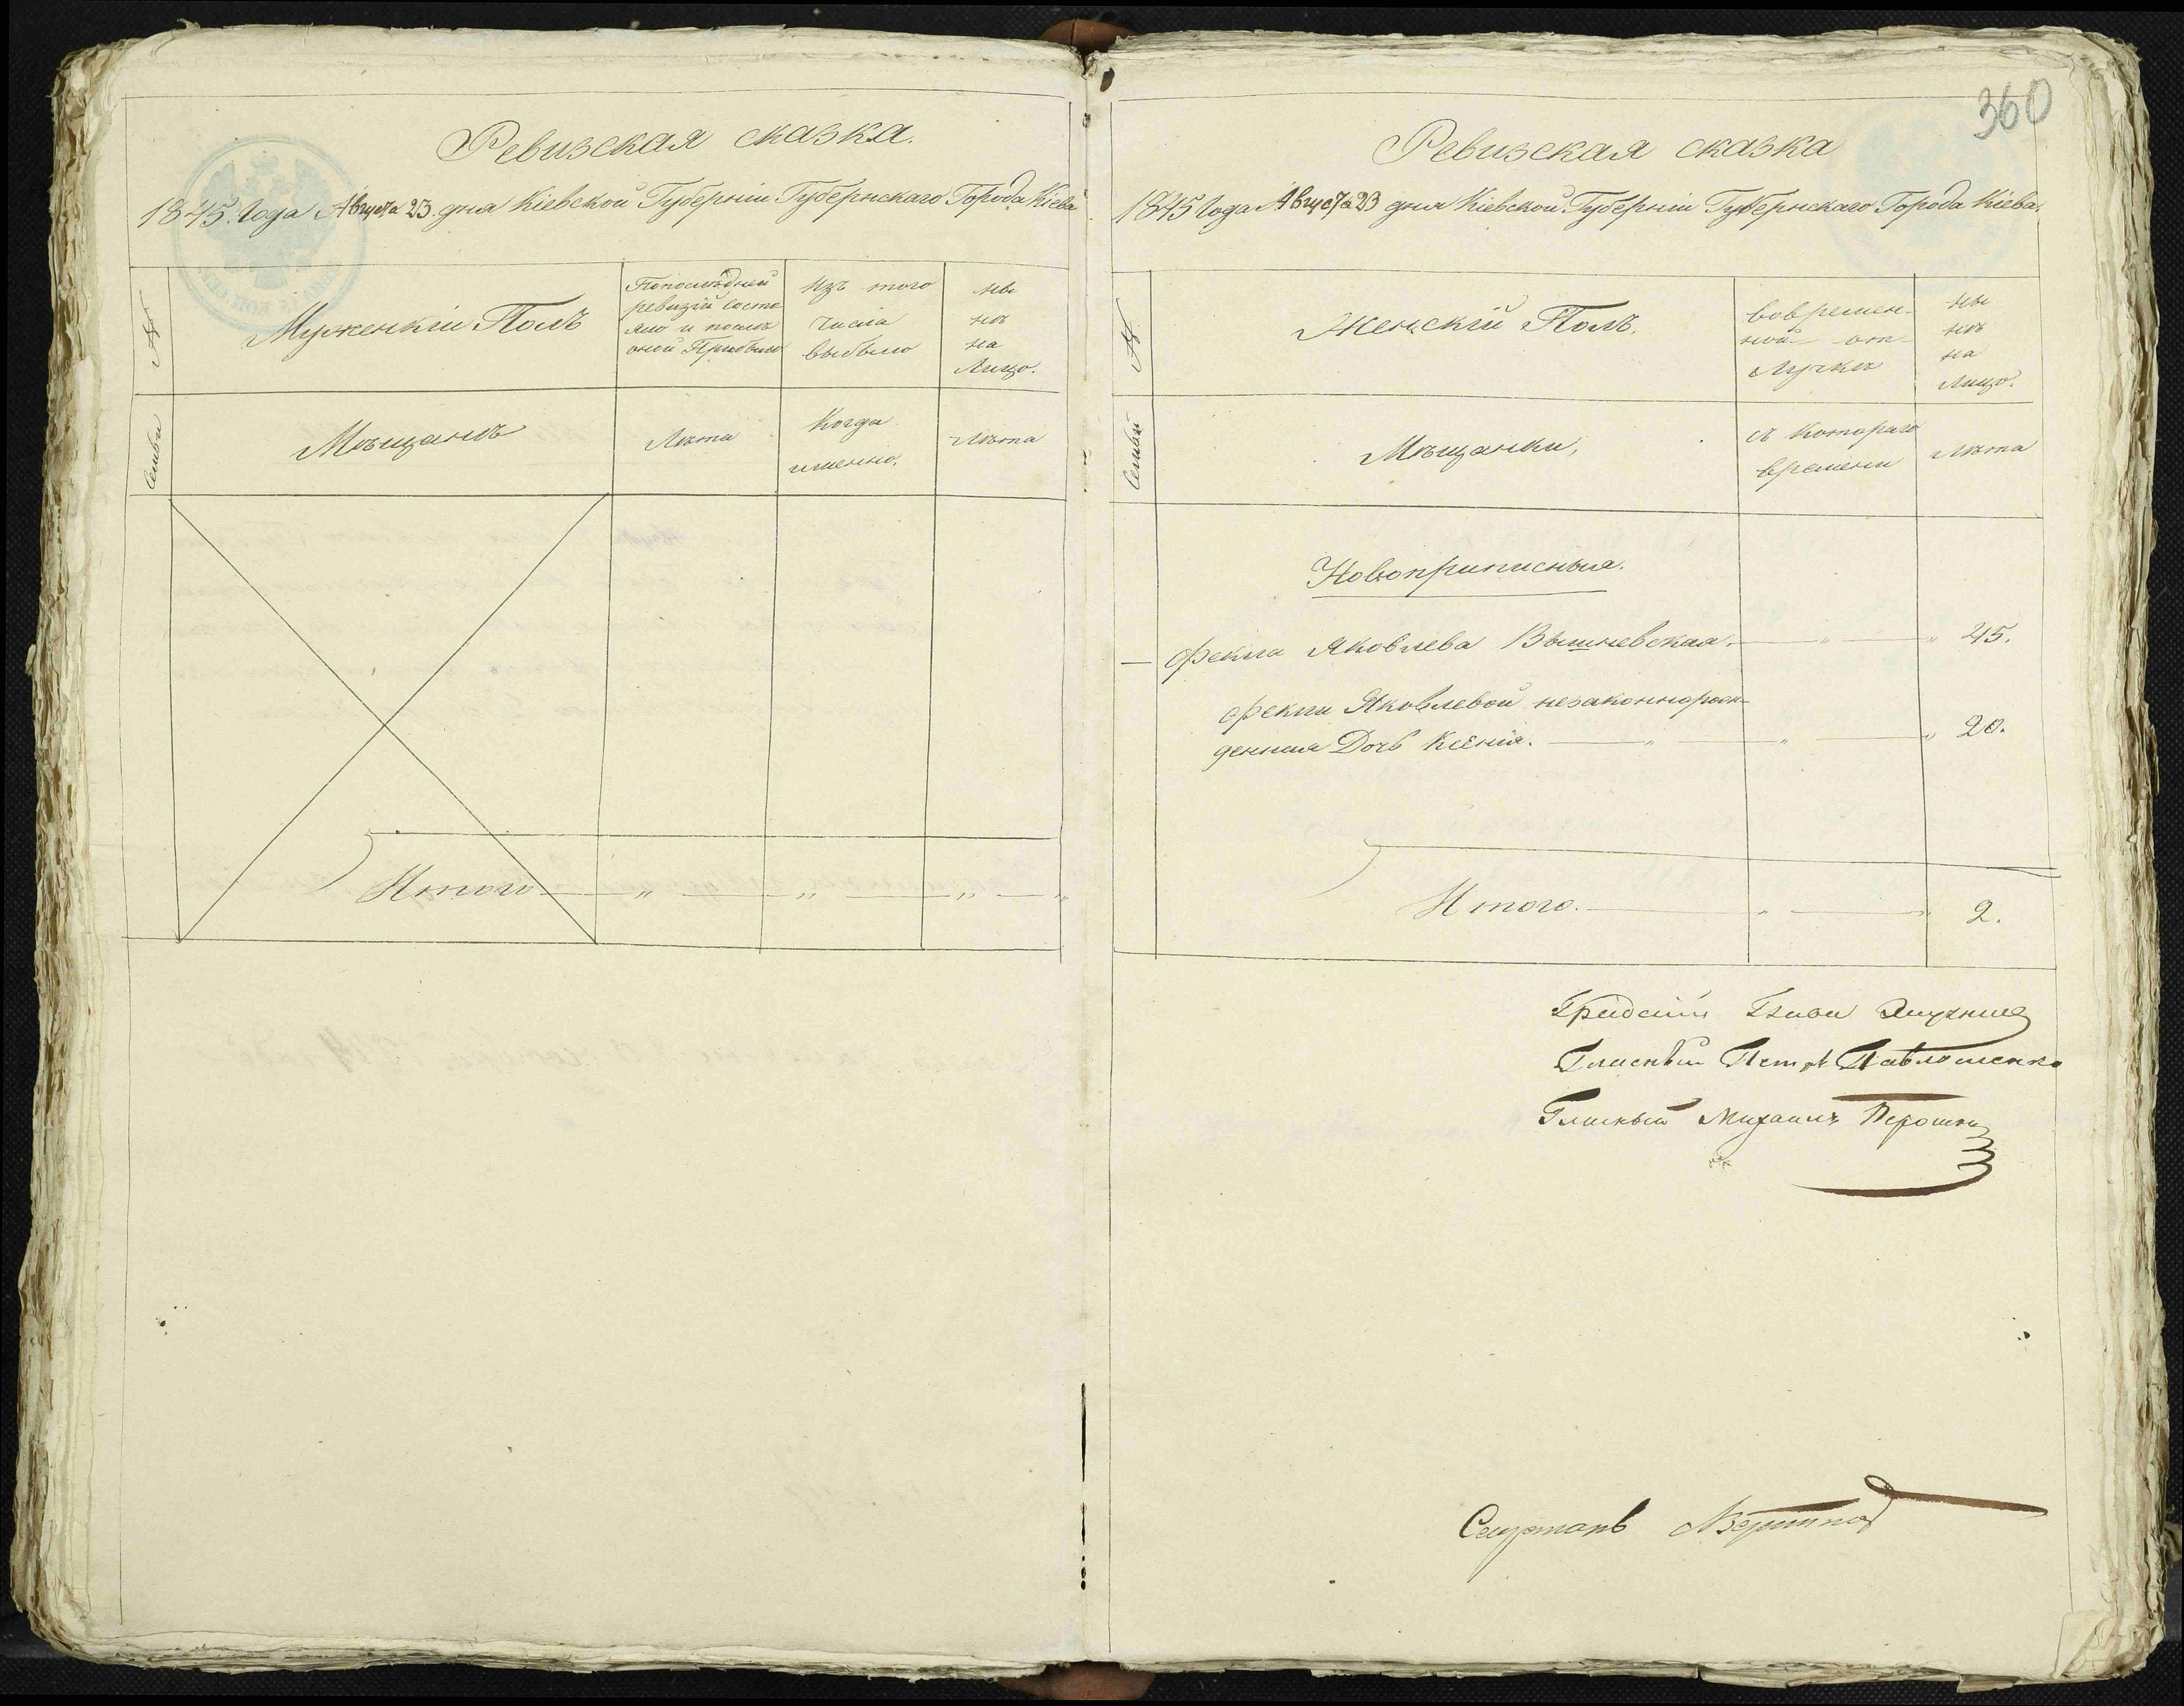 Ревизская сказка.
1845. Года Августа 23 дня Кіевской Губерніи Губернскаго Города Кіева
№
Семьи
Мужескій Полъ
Попослѣдней
ревизіи состо
яло и послѣ
оной Прибыло
Изъ того
числа
выбыло
ны
нѣ
на
Лицо.
Мѣщанъ
Лѣта
Когда
именно.
Лѣта
Итого
360
Ревизская сказка
1845 Года Августа 23 дня Кіевской Губерніи Губернскаго Города Кіева.
№
Семьи
Женскій Полъ.
вовремен-
ной от-
Лучкѣ
ны
нѣ
на
Лицо.
Мѣщанки,
съ котораго
времени
Лѣта
Новоприписныя.
Фекла Яковлева Вышневская. 45.
Феклы Яковлевой незаконнорож-
денная Дочь Ксенія. 20.
Итого. 2.
Гласный Петръ Павлошенко
Гласный Михаилъ